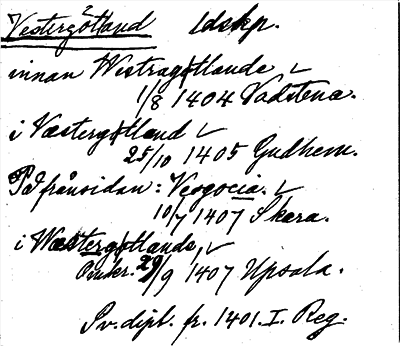 Vestergötland 2 ldskp.
innan Westragötlande ✓
1/8 1404 Vadstena.
i Væstergötland ✓
25/10 1405 Gudhem.
På frånsidan: Vesgocia. ✓
10/7 1407 Skara.
i Wæstergøtlande, ✓
Omkr. 29/9 1407 Upsala.
Sv. dipl. fr. 1401. I. Reg.